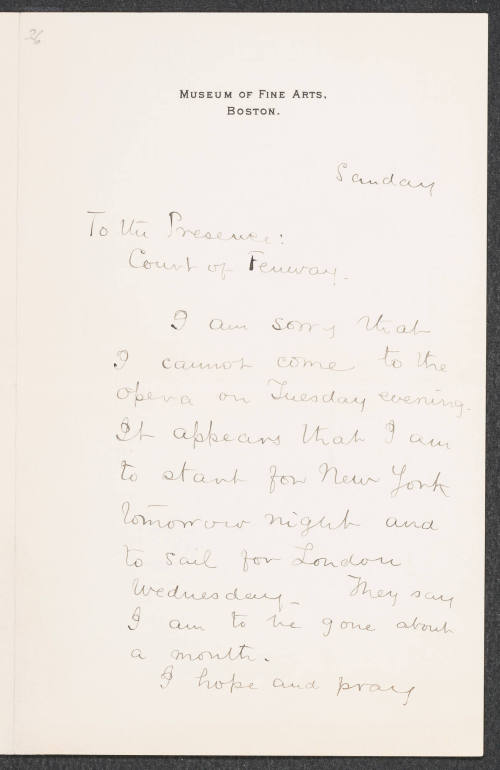 26
MUSEUM OF FINE ARTS,
BOSTON.
Sunday
To the Presence:
Court of Fenway.
I am sorry that
I cannot come to the
opera on Tuesday evening.
It appears that I am
to start for New York
tomorrow night and
to sail for London
Wednesday_ They say
I am to be gone about
a month.
I hope and pray